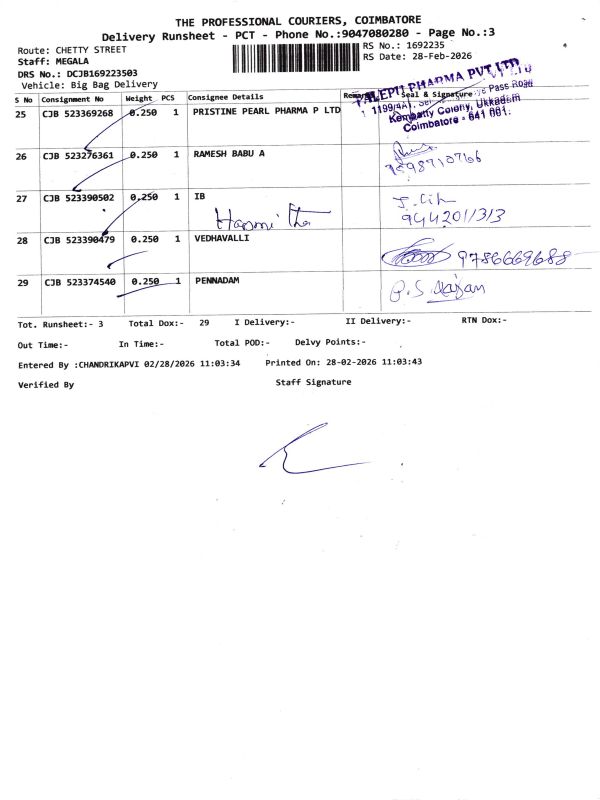 THE PROFESSIONAL COURIERS, COIMBATORE
Delivery Runsheet - PCT - Phone No.:9047080280 - Page No.:3
Route: CHETTY STREET
RS No.: 1692235
Staff: MEGALA
RS Date: 28-Feb-2026
DRS No.: DCJB169223503
Vehicle: Big Bag Delivery
S No Consignment No Weight PCS Consignee Details Seal & Signature
PHARMA PVT LTD
Pass Road
Kempatty Colony, Ukkadam
Coimbatore - 641 001.
25 CJB 523369268 0.250 1 PRISTINE PEARL PHARMA P LTD
26 CJB 523276361 0.250 1 RAMESH BABU A
27 CJB 523390502 0.250 1 IB
9442011313
28 CJB 523390479 0.250 1 VEDHAVALLI 9786669688
29 CJB 523374540 0.250 1 PENNADAM
Tot. Runsheet:- 3 Total Dox:- 29 I Delivery:- II Delivery:- RTN Dox:-
Out Time:- In Time:- Total POD:- Delvy Points:-
Entered By :CHANDRIKAPVI 02/28/2026 11:03:34 Printed On: 28-02-2026 11:03:43
Verified By Staff Signature